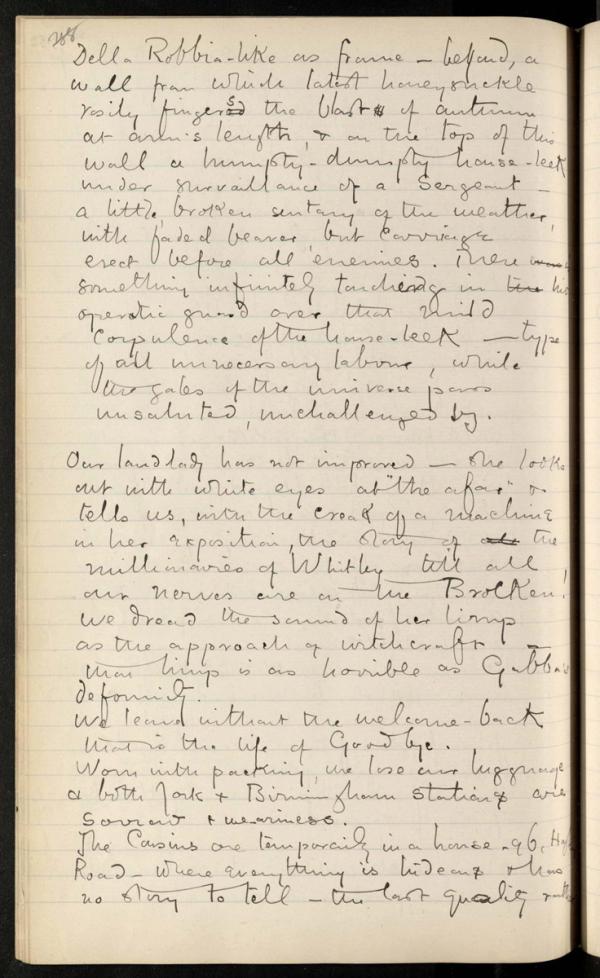 288
Della Robbia-like as frame — behind, a
wall from which latest honeysuckle
rosily fingers the blast of autumn
at arm's length, & on the top of this
wall a humpty-dumpty house-leek
under survaillance of a Sergeant —
a little, broken sentary of the weather,
with faded beaver, but carriage
erect before all enemies. There was
something infinitely touching in the his
operatic guard over that mild
corpulence of the house-leek — type
of all unnecessary labour, while
the gales of the universe pass
unsaluted, unchallenged by.
Our landlady has not improved — she looks
out with white eyes at "the afar" &
tells us, with the creak of a machine
in her exposition, the story of the
millionaires of Whitby till all
our nerves are on the Brocken.
We dread the sound of her limp
as the approach of witchcraft —
that limp is as horrible as Gubba's
deformity.
We leave without the welcome-back
that is the life of Goodbye.
Worn with packing, we lose our luggage
& both York & Birmingham stations are
sorrow & weariness.
The Cousins are temporarily in a house - 96,
Road — where everything is hideous & has
no story to tell — the last quality